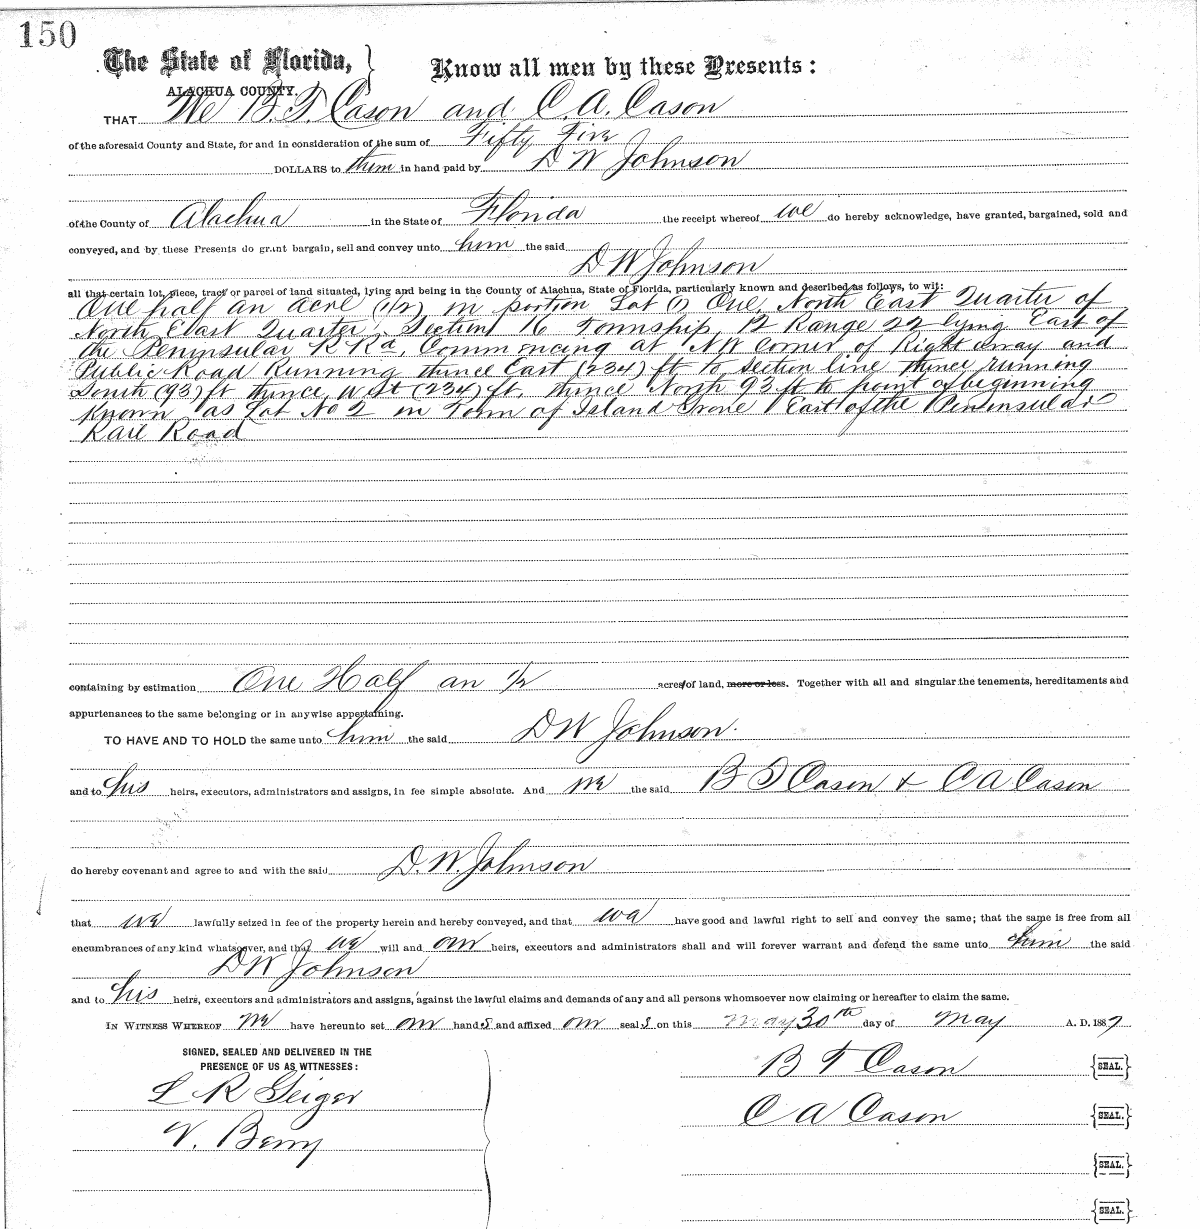 150
The State of Florida, } Know all men by these Presents:
ALACHUA COUNTY.
THAT We B. T. Cason and C. A. Cason
of the aforesaid County and State, for and in consideration of the sum of Fifty Five
DOLLARS to them in hand paid by D W Johnson
of the County of Alachua in the State of Florida the receipt whereof we do hereby acknowledge, have granted, bargained, sold and
conveyed, and by these Presents do grant bargain, sell and convey unto him the said
D W Johnson
all that certain lot, piece, tract or parcel of land situated, lying and being in the County of Alachua, State of Florida, particularly known and described as follows, to wit:
One half an acre (1/2) in portion Lot (1) One, North East Quarter of
North East Quarter, Section 16 Township 12 Range 22 lying East of
the Peninsular R Rd, Commencing at NW corner of Right away and
Public Road Running thence East (234) ft to section line thence running
South (93) ft thence West (234) ft. thence North 93 ft to point of beginning
Known as Lot No 2 in Town of Island Grove East of the Peninsular
Rail Road
containing by estimation One Half an 1/2 acres of land, more or less. Together with all and singular the tenements, hereditaments and
appurtenances to the same belonging or in anywise appertaining.
TO HAVE AND TO HOLD the same unto him the said D W Johnson.
and to his heirs, executors, administrators and assigns, in fee simple absolute. And we the said B T Cason & C A Cason
do hereby covenant and agree to and with the said D. W. Johnson
that we lawfully seized in fee of the property herein and hereby conveyed, and that we have good and lawful right to sell and convey the same; that the same is free from all
encumbrances of any kind whatsoever, and that we will and our heirs, executors and administrators shall and will forever warrant and defend the same unto him the said
D W Johnson
and to his heirs, executors and administrators and assigns, against the lawful claims and demands of any and all persons whomsoever now claiming or hereafter to claim the same.
IN WITNESS WHEREOF we have hereunto set our hands and affixed our seals on this May 30th day of May A. D. 1887
SIGNED, SEALED AND DELIVERED IN THE
PRESENCE OF US AS WITNESSES:
B T Cason {SEAL.}
L R Geiger
C A Cason {SEAL.}
V. Berry
{SEAL.}
{SEAL.}